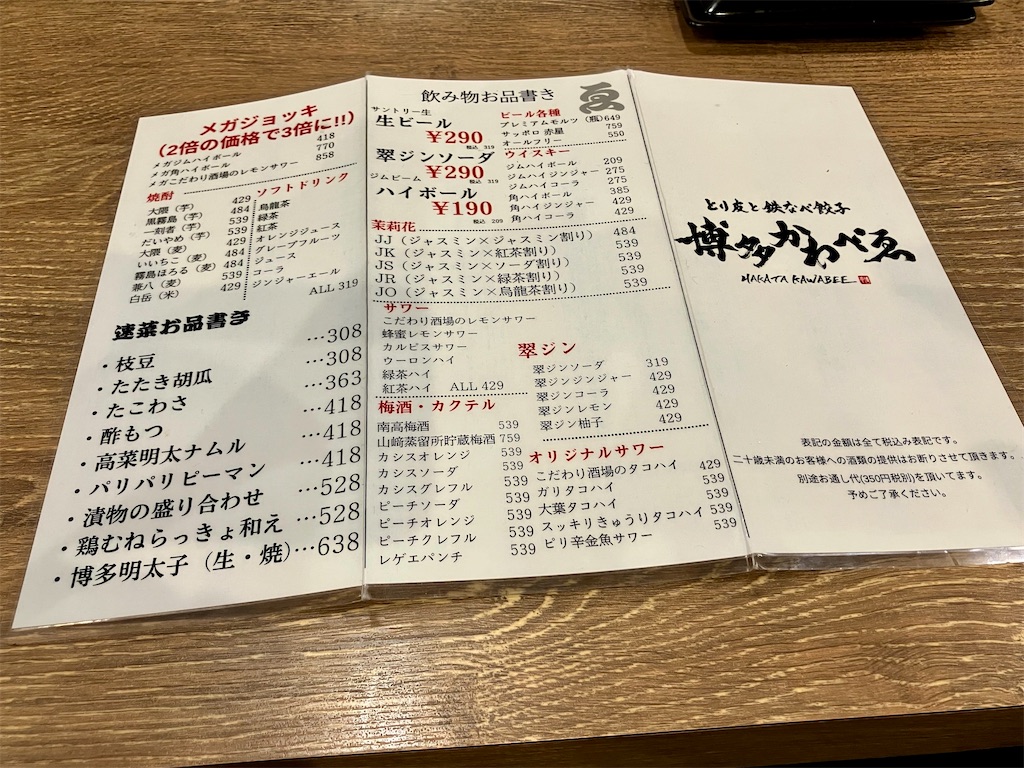 メガジョッキ
(2倍の価格で3倍に!!)
メガジムハイボール 418
メガ角ハイボール 770
メガこだわり酒場のレモンサワー 858
焼酎
大隈（芋） 429
黒霧島（芋） 484
一刻者（芋） 539
だいやめ（芋） 539
大隈（麦） 429
いいちこ（麦） 484
霧島ほろる（麦） 484
兼八（麦） 539
白岳（米） 429
ソフトドリンク
烏龍茶
緑茶
紅茶
オレンジジュース
グレープフルーツ
ジュース
コーラ
ジンジャーエール
ALL 319
速菜お品書き
・枝豆 …308
・たたき胡瓜 …308
・たこわさ …363
・酢もつ …418
・高菜明太ナムル …418
・パリパリピーマン …418
・漬物の盛り合わせ …528
・鶏むねらっきょ和え …528
・博多明太子（生・焼）…638
飲み物お品書き
サントリー生
生ビール
¥290
税込 319
翠ジンソーダ
¥290
税込 319
ジムビーム
ハイボール
¥190
税込 209
ビール各種
プレミアムモルツ（瓶）649
サッポロ 赤星 759
オールフリー 550
ウイスキー
ジムハイボール 209
ジムハイジンジャー 275
ジムハイコーラ 275
角ハイボール 385
角ハイジンジャー 429
角ハイコーラ 429
茉莉花
JJ（ジャスミン×ジャスミン割り） 484
JK（ジャスミン×紅茶割り） 539
JS（ジャスミン×ソーダ割り） 539
JR（ジャスミン×緑茶割り） 539
JO（ジャスミン×烏龍茶割り） 539
サワー
こだわり酒場のレモンサワー
蜂蜜レモンサワー
カルピスサワー
ウーロンハイ
緑茶ハイ
紅茶ハイ ALL 429
翠ジン
翠ジンソーダ 319
翠ジンジンジャー 429
翠ジンコーラ 429
翠ジンレモン 429
翠ジン柚子 429
梅酒・カクテル
南高梅酒 539
山崎蒸留所貯蔵梅酒 759
カシスオレンジ 539
カシスソーダ 539
カシスグレフル 539
ピーチソーダ 539
ピーチオレンジ 539
ピーチクレフル 539
レゲエパンチ 539
オリジナルサワー
こだわり酒場のタコハイ 429
ガリタコハイ 539
大葉タコハイ 539
スッキリきゅうりタコハイ 539
ピリ辛金魚サワー 539
とり皮と鉄なべ餃子
博多かわべゑ
HAKATA KAWABEE
表記の金額は全て税込み表記です。
二十歳未満のお客様への酒類の提供はお断りさせて頂きます。
別途お通し代(350円税別)を頂いてます。
予めご了承ください。